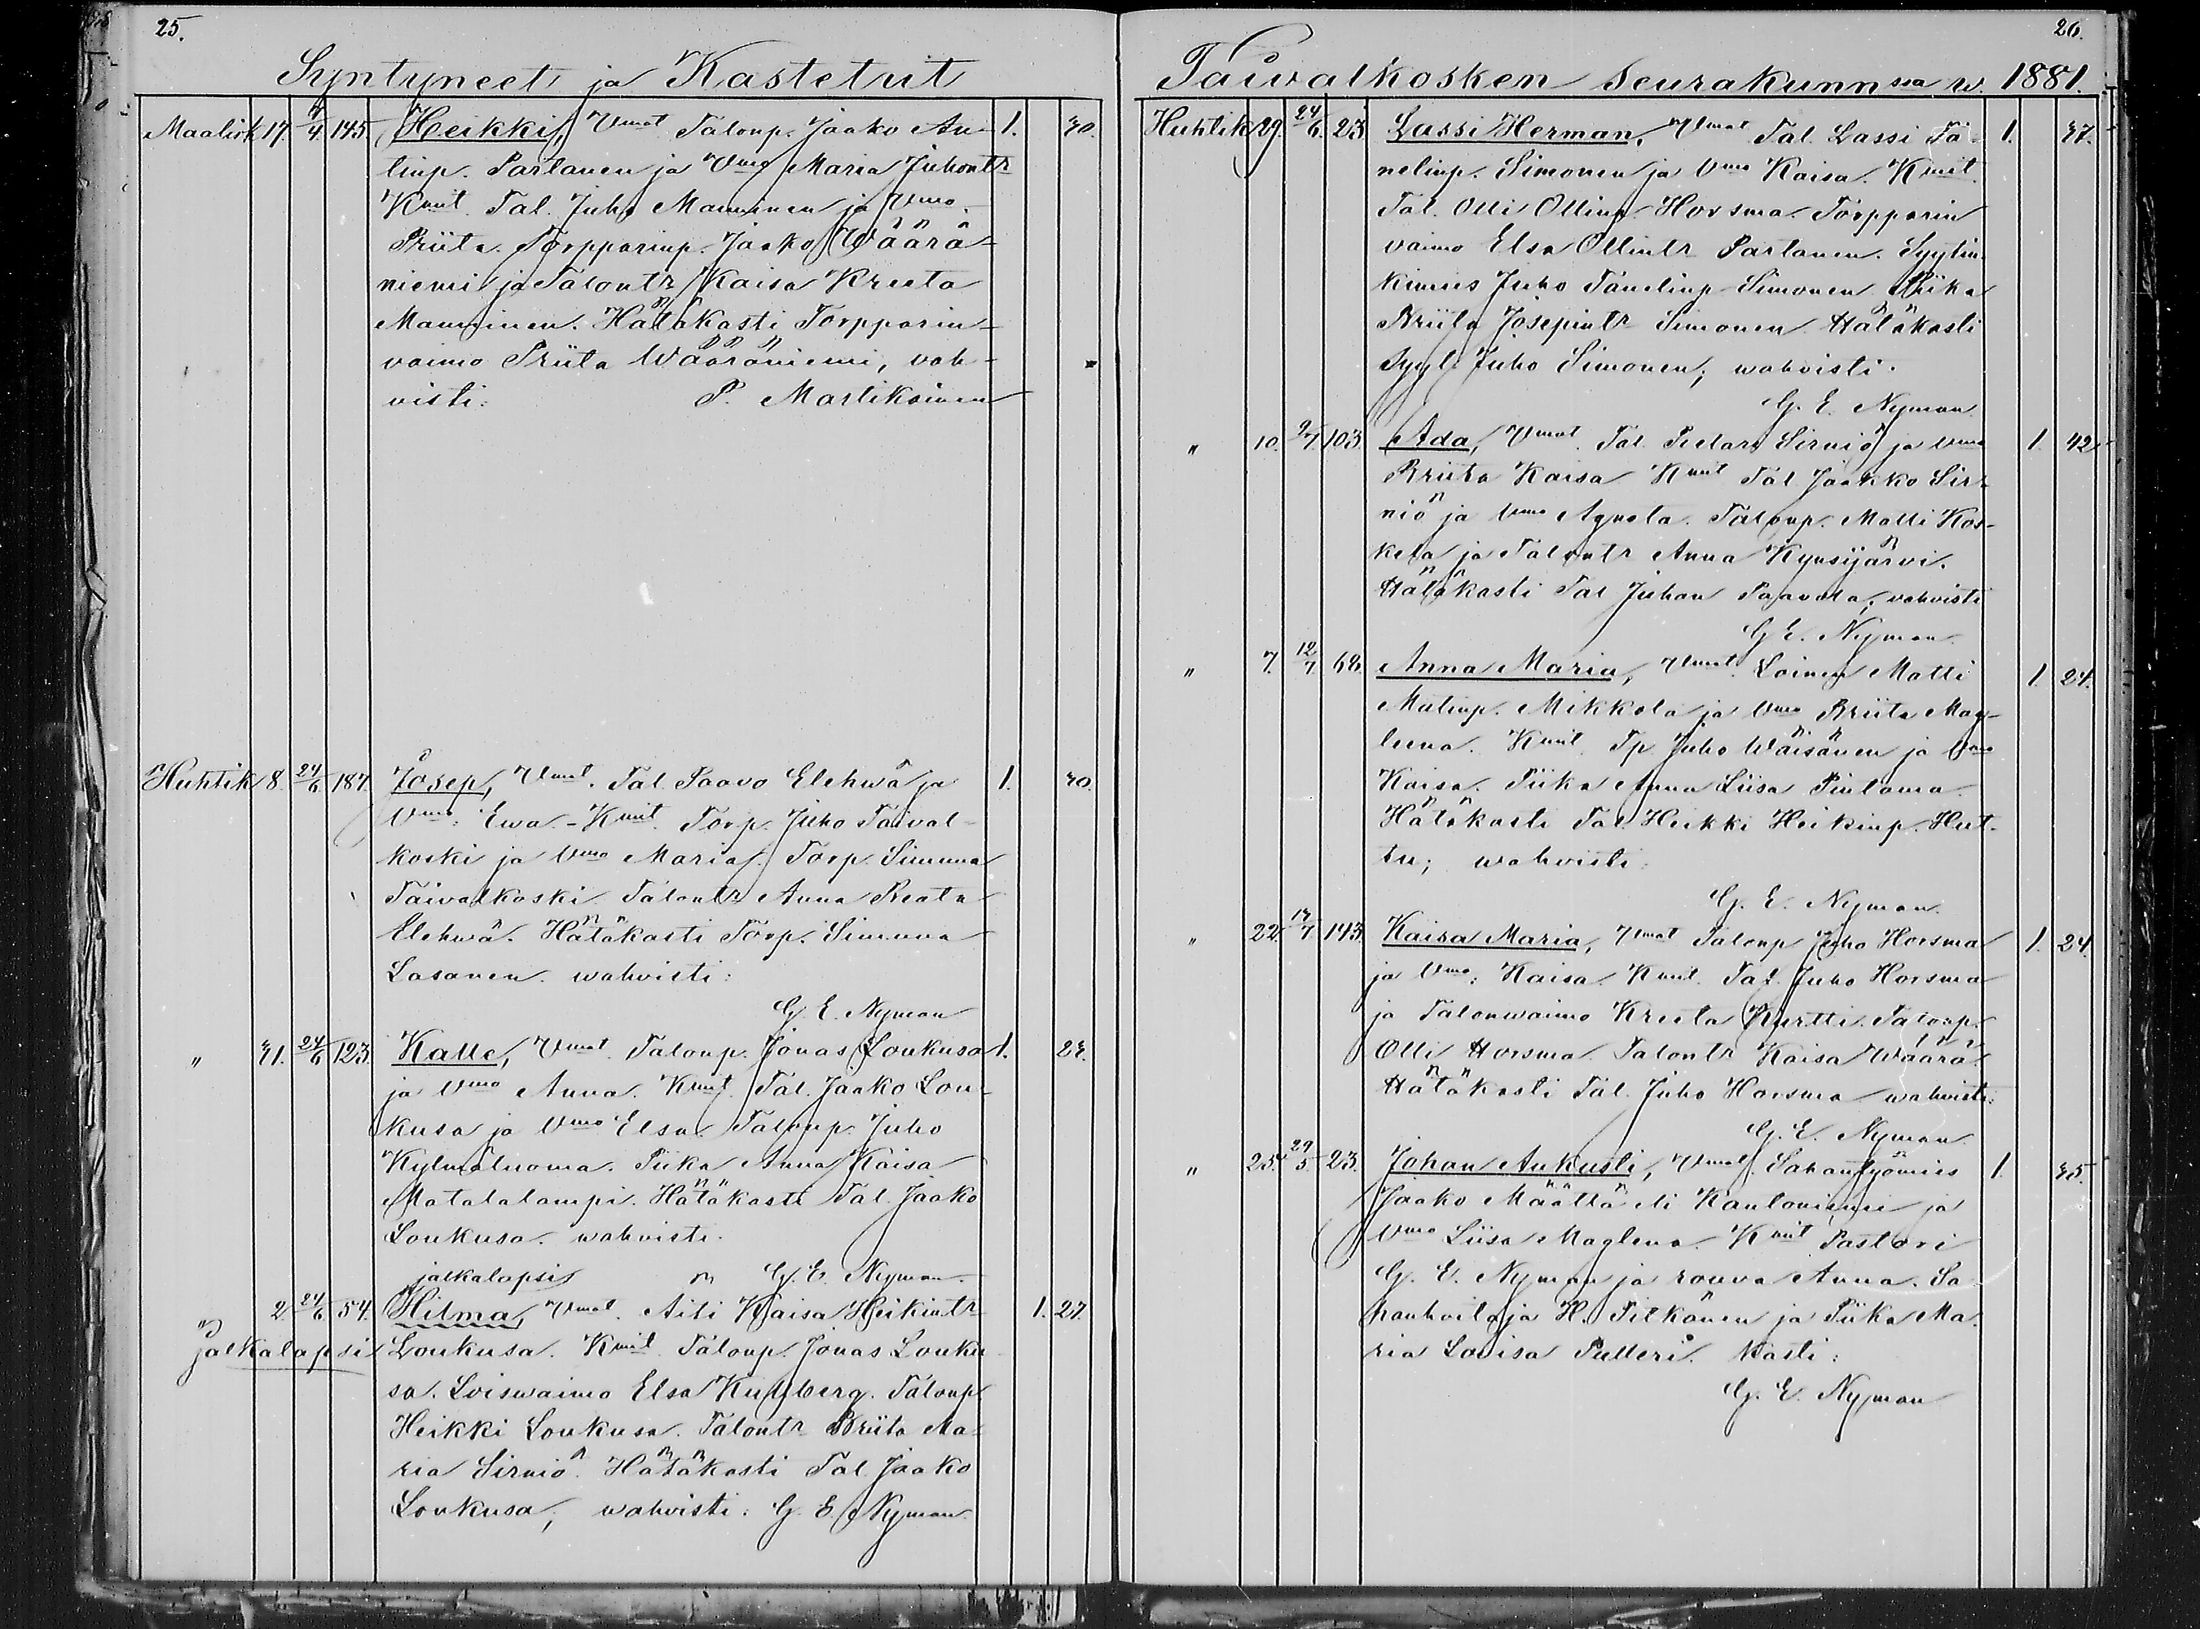 25.
Syntyneet ja Kastetut
Maalisk 17. 4/4. 145. Heikki, Vmat Talonp. Jaako An- 1. 30.
tinp. Parlanen ja Vmo Maria Juhontr
Kmit. Tal. Juho Manninen ja Vmo
Priita. Torpparinp. Jaako Wäärä-
niemi ja Talontr Kaisa Kreeta
Manninen. Hätäkasti Torpparin-
vaimo Priita Wääräniemi, vah-
visti: P. Martikainen
Huhtik 8. 24/6. 187. Josep, Vmat. Tal. Paavo Elehwä ja 1. 30.
Vmo: Ewa. - Kmit. Torp. Juho Taival-
koski ja Vmo Maria. Torp. Simuna
Taivalkoski Talontr Anna Reeta
Elehwä. Hätäkasti Torp. Simuna
Lasanen. wahvisti:
G. E. Nyman
" 31. 24/6 123. Kalle, Vmat. Talonp. Jonas Loukusa 1. 23.
ja Vmo Anna. Kmit. Tal. Jaako Lou-
kusa ja Vmo Elsa. Talonp. Juho
Kylmäluoma. Piika Anna Kaisa
Matalalampi. Hätäkasti Tal. Jaako
Loukusa. wahvisti.
jalkalapsi G. E. Nyman.
" 2. 24/6. 54. Hilma, Vmat. Äiti Kaisa Heikintr 1. 27.
jalkalapsi Loukusa. Kmit. Talonp. Jonas Louku
sa. Loiswaimo Elsa Kullberg. Talonp
Heikki Loukusa. Talontr Briita Ma-
ria Sirniö. Hätäkasti Tal. Jaako
Loukusa, wahvisti: G. E. Nyman.
26.
Taivalkosken seurakunnssa w. 1881.
Huhtik 29. 24/6. 23 Lassi Herman, Vmat Tal. Lassi Tä- 1. 37.
nelinp. Simonen ja Vmo Kaisa. Kmit.
Tal. Olli Ollinp. Horsma. Törpparin
vaimo Elsa Ollintr Parlanen. Syytin
kimies Juho Tänelinp Simonen Piika
Briita Josepintr Simonen Hätäkasti
Syyt. Juho Simonen; wahvisti.
G. E. Nyman
" 10. 9/7. 103. Ada, Vmat. Tal. Pietari Sirniö ja Vmo 1. 42
Briita Kaisa Kmit Tal. Jaakko Sir-
niö ja Vmo Agneta. Talonp. Matti Kos-
kela ja Talontr Anna Kynsijärvi.
Hätäkasti Tal Juhan Paavola, vahvisti
G E. Nyman.
" 7. 12/7. 68. Anna Maria, Vmat. Loinen Matti 1. 24.
Matinp. Mikkola ja Vmo Briita Mag-
leena. Kmit. Tp. Juho Wäisänen ja Vmo
Kaisa. Piika Anna Liisa Pintama.
Hätäkasti Tal. Heikki Heikinp. Hut-
tu; wahvisti:
G. E. Nyman.
" 22. 17/7. 143. Kaisa Maria, Vmat Talonp Juho Horsma 1. 24.
ja Vmo: Kaisa. Kmit. Tal. Juho Horsma
ja Talonwaimo Kreeta Kurtti. Talonp.
Olli Horsma. Talontr Kaisa Wäärä.
Hätäkasti Tal. Juho Horsma wahvisti:
G. E. Nyman
" 25. 29/5. 23. Johan Aukusti, Vmat. Sahantyömies 1. 35.
Jaako Määttä eli Kantoniemi ja
Vmo Liisa Maglena. Kmit Pastori
G. E. Nyman ja rouva Anna. Sa
hanhoitaja H. Pitkänen ja Piika Ma-
ria Lovisa Pulleri. Kasti:
G. E. Nyman